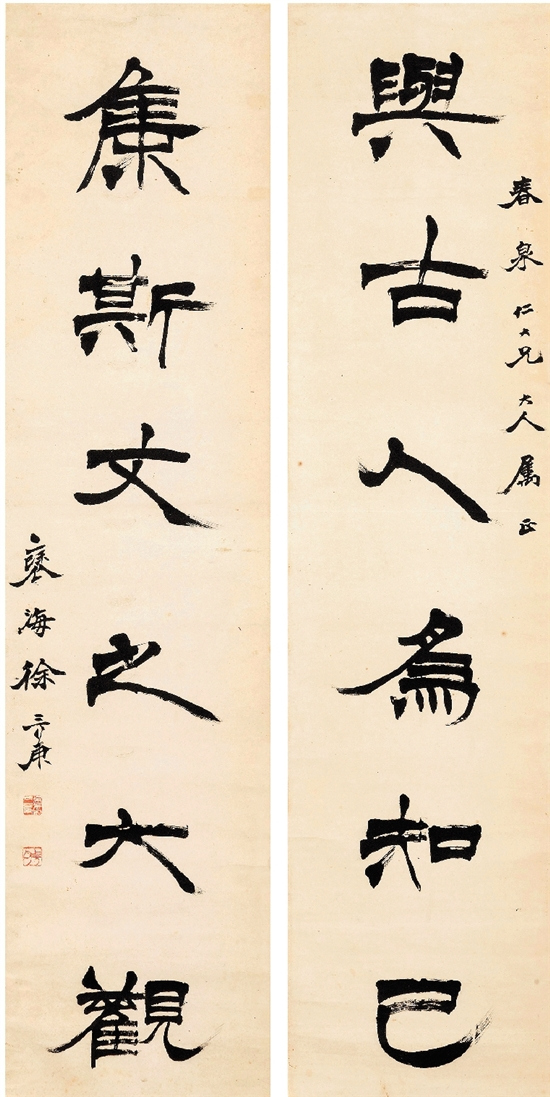 春泉仁大兄大人属正
與古人爲知己
集斯文之大觀
褎海徐三庚